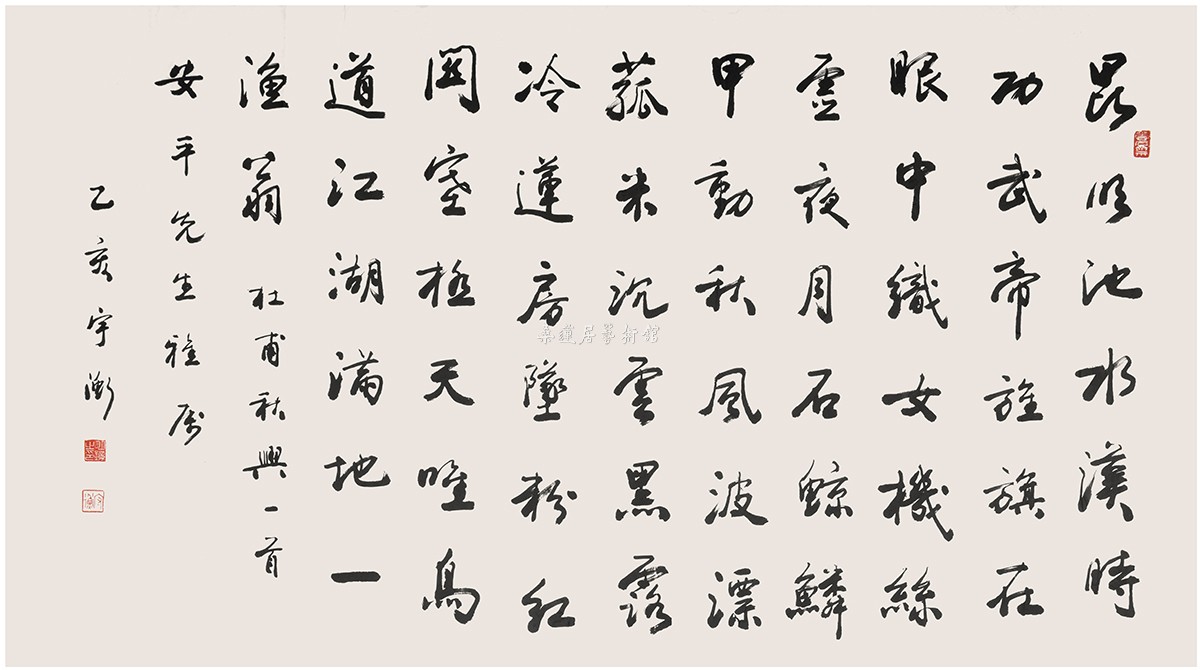 昆明池水漢時
功武帝旌旗在
眼中織女機絲
虛夜月石鯨鱗
甲動秋風波漂
菰米沉雲黑露
冷蓮房墜粉紅
關塞極天唯鳥
道江湖滿地一
漁翁 杜甫秋興一首
安平先生雅属
乙亥宇
桑蓮居藝術館